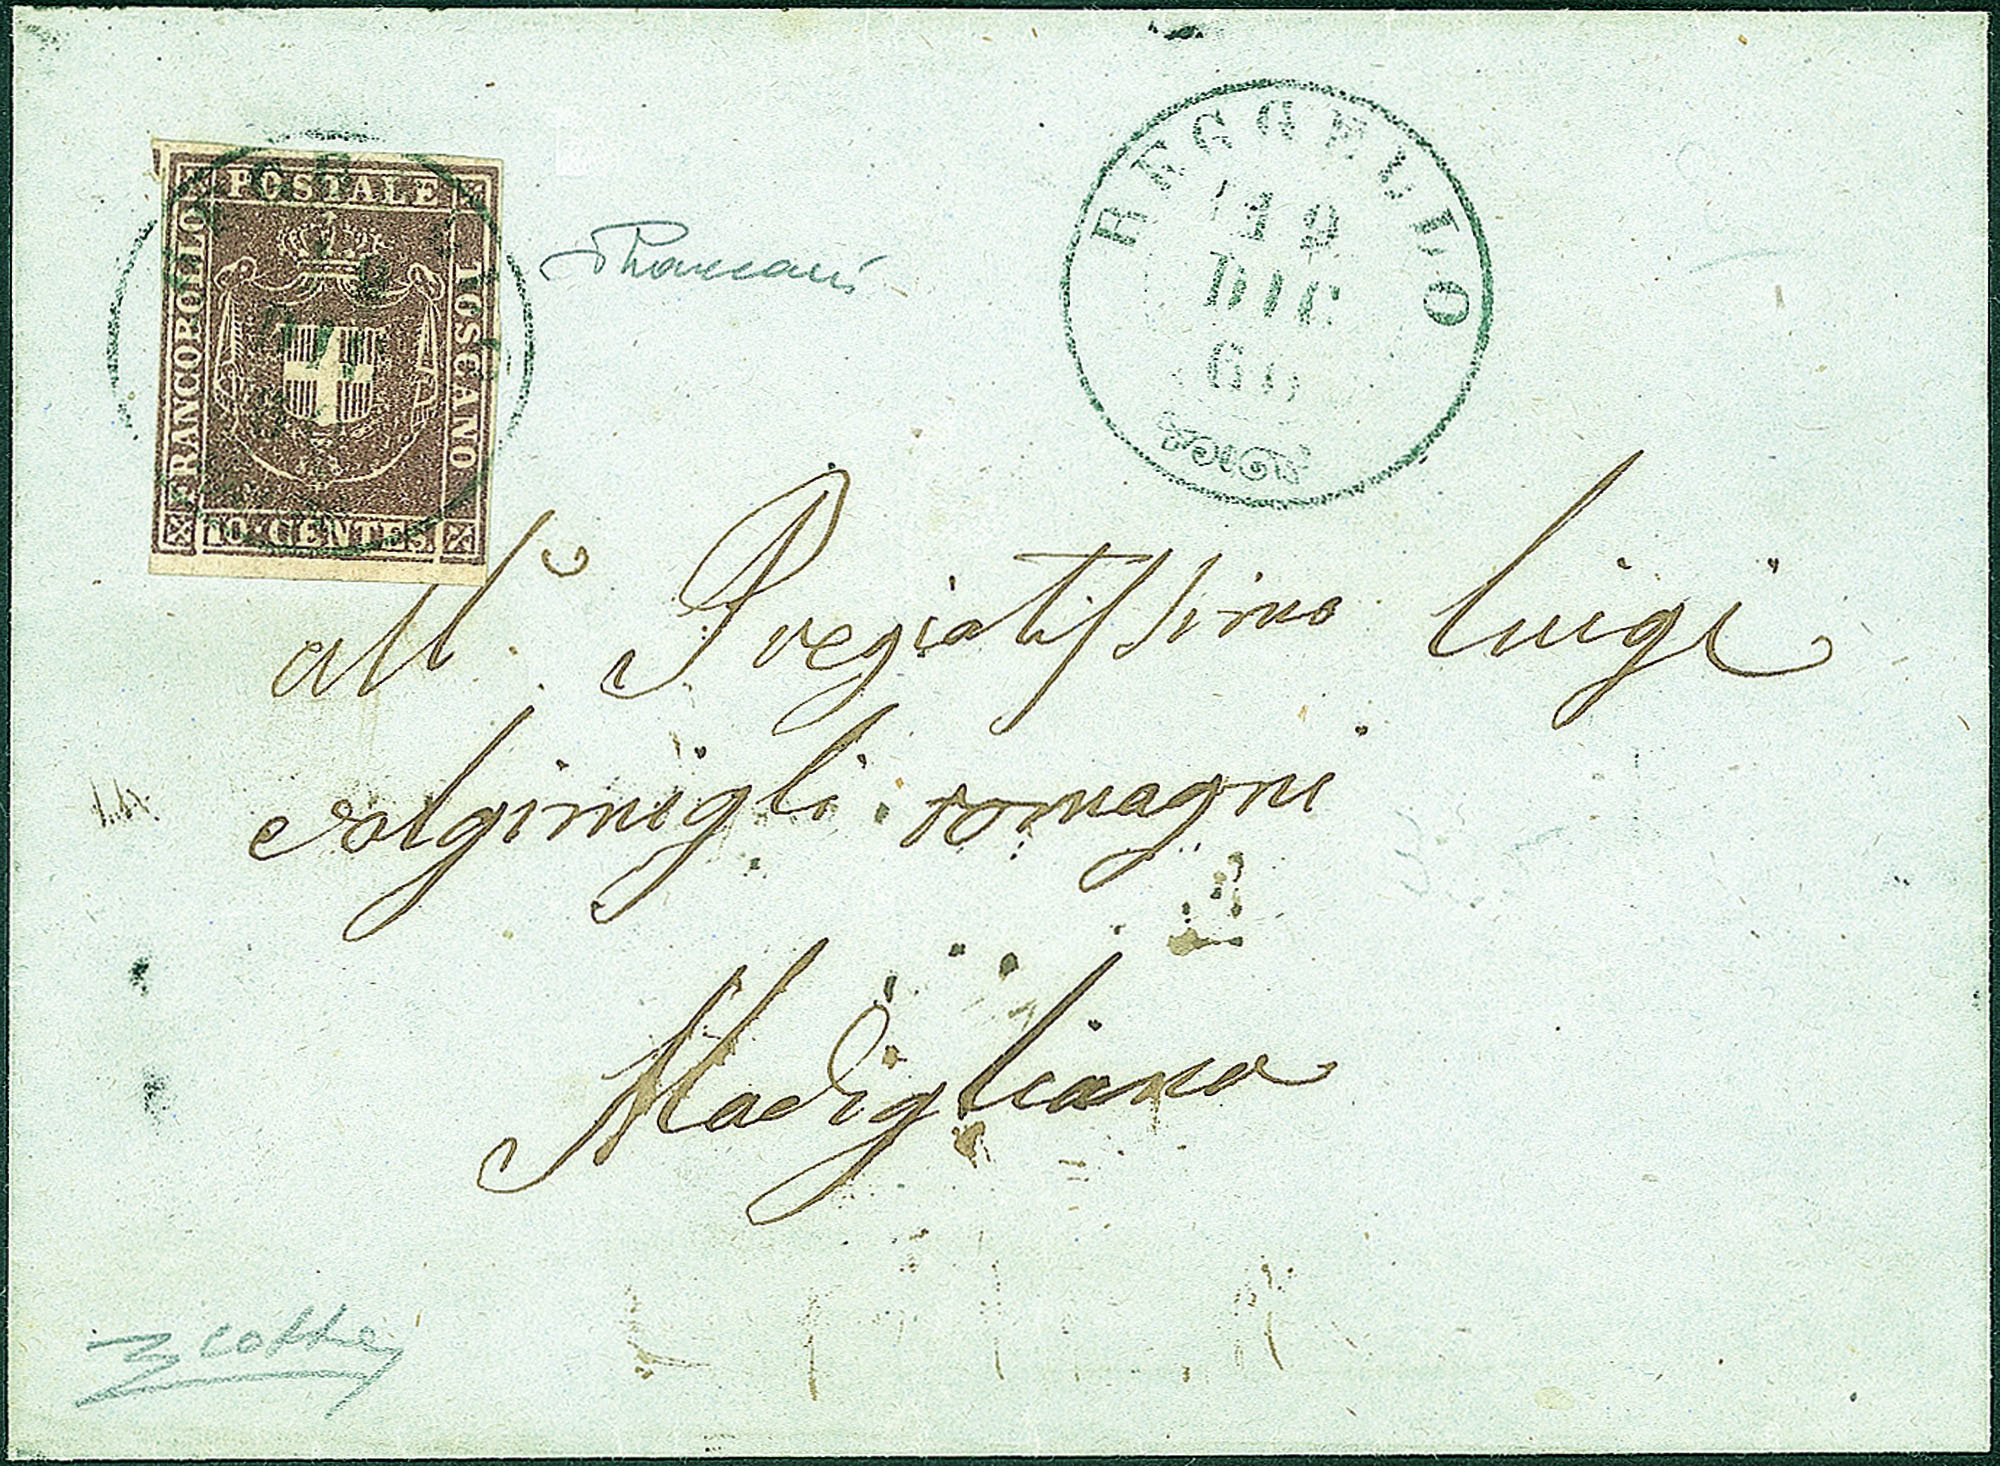 POSTALE
FRANCOBOLLO
TOSCANO
10 · CENTES.
REGGELLO
19
DIC
60
all. Pregiatissimo Luigi
Valgimigli romagni
Modigliana